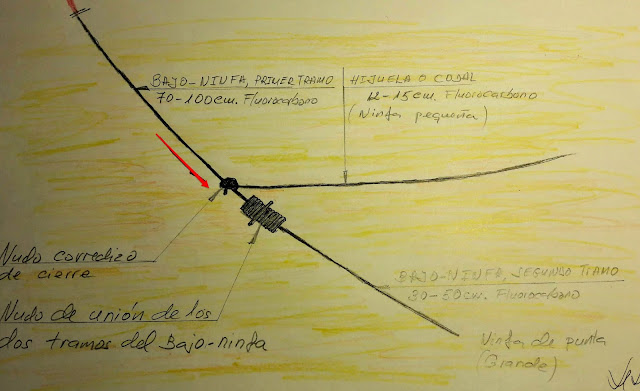 BAJO-NINFA, PRIMER TRAMO
70-100cm. Fluorocarbono
HIJUELA O CODAL
12-15cm. Fluorocarbono
(Ninfa pequeña)
Nudo corredizo
de cierre
Nudo de unión de los
dos tramos del Bajo-ninfa
BAJO-NINFA, SEGUNDO TRAMO
30-50cm. Fluorocarbono
Ninfa de punta
(Grande)